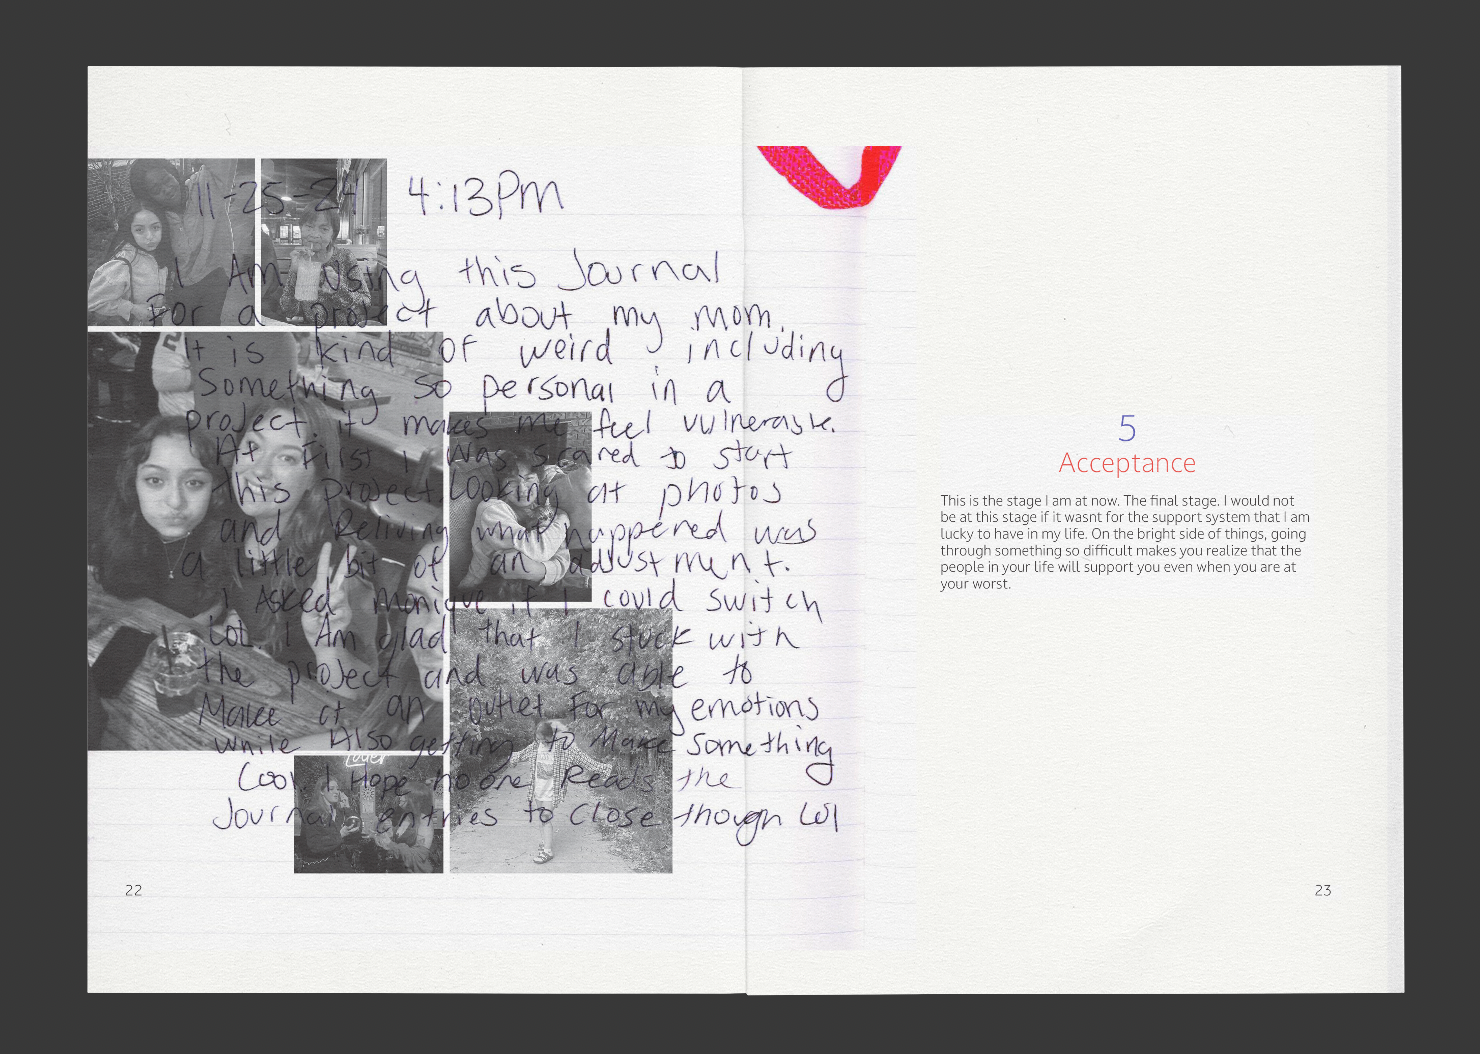 11-25-24 4:13PM
I Am Using this Journal
For a project about my mom.
It is kind of weird including
Something so personal in a
project. it makes me feel vulnerable.
At First i was scared to start
this project. Looking at photos
and Reliving what happened was
a little bit of an adjustment.
i Asked monique if I could switch
Lol. I Am glad that I stuck with
the project and was able to
Make it an outlet For my emotions
while Also getting to Make Something
Cool. I Hope no one Reads the
Journal entries to Close though Lol
22
5
Acceptance
This is the stage I am at now. The final stage. I would not
be at this stage if it wasnt for the support system that I am
lucky to have in my life. On the bright side of things, going
through something so difficult makes you realize that the
people in your life will support you even when you are at
your worst.
23